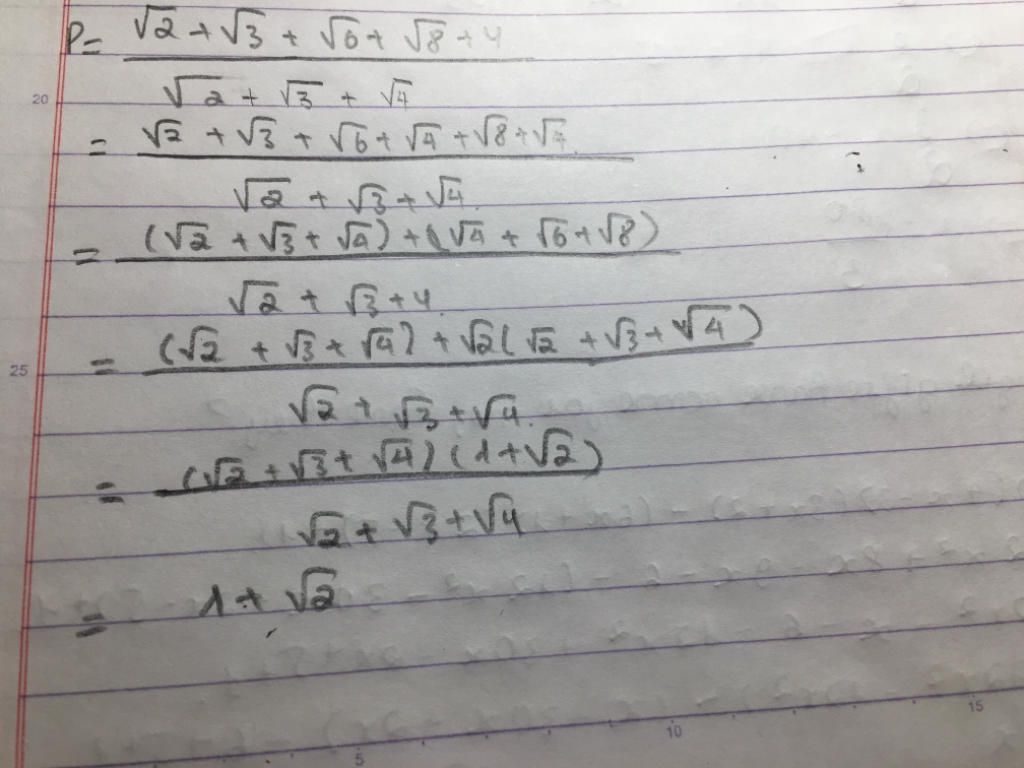 P = \frac{√2 + √3 + √6 + √8 + 4}{√2 + √3 + √4}
= \frac{√2 + √3 + √6 + √4 + √8 + √4}{√2 + √3 + √4}
= \frac{(√2 + √3 + √4) + (√4 + √6 + √8)}{√2 + √3 + 4}
= \frac{(√2 + √3 + √4) + √2(√2 + √3 + √4)}{√2 + √3 + √4}
= \frac{(√2 + √3 + √4)(1 + √2)}{√2 + √3 + √4}
= 1 + √2
20
25
5
10
15